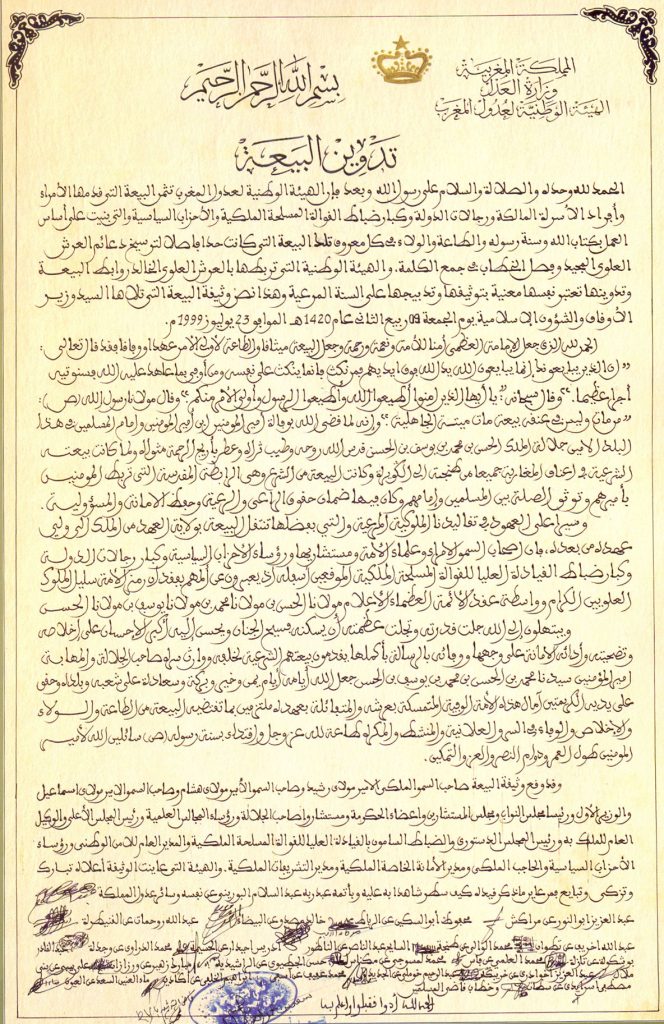 المملكة المغربية
وزارة العدل
الهيئة الوطنية لعدول المغرب
بسم الله الرحمن الرحيم
تدوين البيعة
الحمد لله وحده والصلاة والسلام على رسول الله وبعد فإن الهيئة الوطنية لعدول المغرب تثمن البيعة التي قدمها الأمراء
وأفراد الأسرة المالكة ورجالات الدولة وكبار ضباط القوات المسلحة الملكية والأحزاب السياسية والتي بنيت على أساس
العمل بكتاب الله وسنة رسوله والطاعة والولاء في كل معروف تلك البيعة التي كانت حدا فاصلا لترسيخ دعائم العرش
العلوي المجيد وفصل الخطاب في جمع الكلمة. والهيئة الوطنية التي تربطها بالعرش العلوي الخالد روابط البيعة
وتدوينها تعتبر نفسها معنية بتوثيقها وتدبيجها على السنة المرعية وهذا نص وثيقة البيعة التي تلاها السيد وزير
الأوقاف والشؤون الإسلامية يوم الجمعة 09 ربيع الثاني عام 1420هـ الموافق 23 يوليوز 1999م.
الحمد لله الذي جعل الإمامة العظمى أمنا للأمة ونعمة ورحمة وجعل البيعة ميثاقا والطاعة لأولي الأمر عهدا ووفاقا فقد قال تعالى:
"إن الذين يبايعونك إنما يبايعون الله يد الله فوق أيديهم فمن نكث فإنما ينكث على نفسه ومن أوفى بما عاهد عليه الله فسنوتيه
أجرا عظيما." وقال سبحانه: "يا أيها الذين آمنوا أطيعوا الله وأطيعوا الرسول وأولي الأمر منكم" وقال مولانا رسول الله (ص):
"من مات وليس في عنقه بيعة مات ميتة الجاهلية" وإنه لما قضى الله بوفاة أمير المومنين ابن أمير المومنين وإمام المسلمين في هذا
البلد الأمين جلالة الملك الحسن بن محمد بن يوسف بن الحسن قدس الله روحه وطيب ثراه وعطر بأريج الرحمة مثواه ولما كانت بيعته
الشرعية في أعناق المغاربة جميعا من طنجة إلى الكويرة وكانت البيعة من الشرع وهي الرابطة المقدسة التي تربط المومنين
بأميرهم وتوثق الصلة بين المسلمين وإمامهم وكان فيها ضمان حقوق الراعي والرعية وحفظ الأمانة والمسؤولية.
وسيرا على المعهود في تقاليدنا الملوكية المرعية والتي بفضلها تنتقل البيعة بولاية العهد من الملك إلى ولي
عهده من بعده، فإن أصحاب السمو الأمراء وعلماء الأمة ومستشاريها ورؤساء الأحزاب السياسية وكبار رجالات الدولة
وكبار ضباط القيادة العليا للقوات المسلحة الملكية الموقعين أسفله إذ يعبرون عن ألمهم بفقدان رمز الأمة سليل الملوك
العلويين الكرام وواسطة عقد الأئمة العظماء الأعلام مولانا الحسن بن مولانا محمد بن مولانا يوسف بن مولانا الحسن
ويبتهلون إلى الله جلت قدرته وتجلت عظمته أن يسكنه فسيح الجنان ويحسن إليه أكبر الإحسان على إخلاصه
وتضحيته وأدائه الأمانة على وجهها ووفائه بالرسالة بأكملها يقدمون بيعتهم الشرعية لخلفه ووارث سره صاحب الجلالة والمهابة
أمير المؤمنين سيدنا محمد بن الحسن بن محمد بن يوسف بن الحسن جعل الله أيامه أيام يمن وخير وبركة وسعادة على شعبه وبلاده وحقق
على يديه الكريمتين آمال هذه الأمة الوفية المتمسكة بعرشه والمتفائلة بعهده ملتزمين بما تقتضيه البيعة من الطاعة والولاء
والإخلاص والوفاء في السر والعلانية والمنشط والمكره طاعة لله عز وجل واقتداء بسنة رسوله (ص) سائلين الله لأمير
المومنين طول العمر ودوام النصر والعز والتمكين.
وقد وقع وثيقة البيعة صاحب السمو الملكي الأمير مولاي رشيد وصاحب السمو الأمير مولاي هشام وصاحب السمو الأمير مولاي اسماعيل
والوزير الأول ورئيسا مجلس النواب ومجلس المستشارين وأعضاء الحكومة ومستشارو صاحب الجلالة ورؤساء المجالس العلمية ورئيس المجلس الأعلى والوكيل
العام للملك به ورئيس المجلس الدستوري والضباط السامون بالقيادة العليا للقوات المسلحة الملكية والمدير العام للأمن الوطني ورؤساء
الأحزاب السياسية والحاجب الملكي ومدير الأمانة الخاصة الملكية ومدير التشريفات الملكية. والهيئة التي عاينت الوثيقة أعلاه تبارك
وتزكي وتبايع فمن عاين ما ذكر قيده كيف سطر شاهدا به عليه وبأتمه عبد ربه عبد السلام البوريني عن نفسه وسائر عدول المملكة
عبد العزيز أبو النور عن مراكش محفوظ أبو السكين عن الرباط خالد مصدق عن البيضاء عبد الله روحمات عن القنيطرة
عبد الله عن تطوان محمد عن طنجة عبد الناصر عن الناظور ادريس عن الحسيمة محمد الدراوي عن وجدة
عن تازة محمد العلمي عن فاس محمد عن مكناس حسن عن الراشيدية عن ورزازات علي عن بني
ملال عبد العزيز عن خريبكة عبد الرحيم عن الجديدة محمد عن آسفي ابراهيم عن أكادير ماء العينين عن العيون
مصطفى عن سطات
الحمد لله أدوا فقبلوا